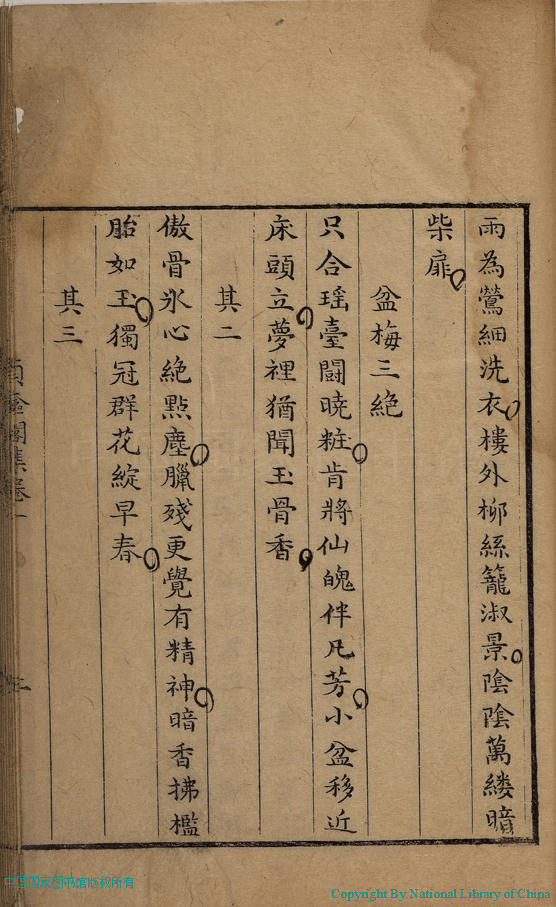 雨為鶯細洗衣樓外桞絲籠淑景陰陰萬縷暗
柴扉
盆梅三絶
只合瑶臺鬪曉粧肯將仙魄伴凡芳小盆移近
床頭立夢裡猶聞玉骨香
其二
傲骨氷心絶點塵臘殘更覺有精神暗香拂檻
胎如玉獨冠群花綻早春
其三
閣集卷一
中国国家图书馆版权所有
Copyright By National Library of China